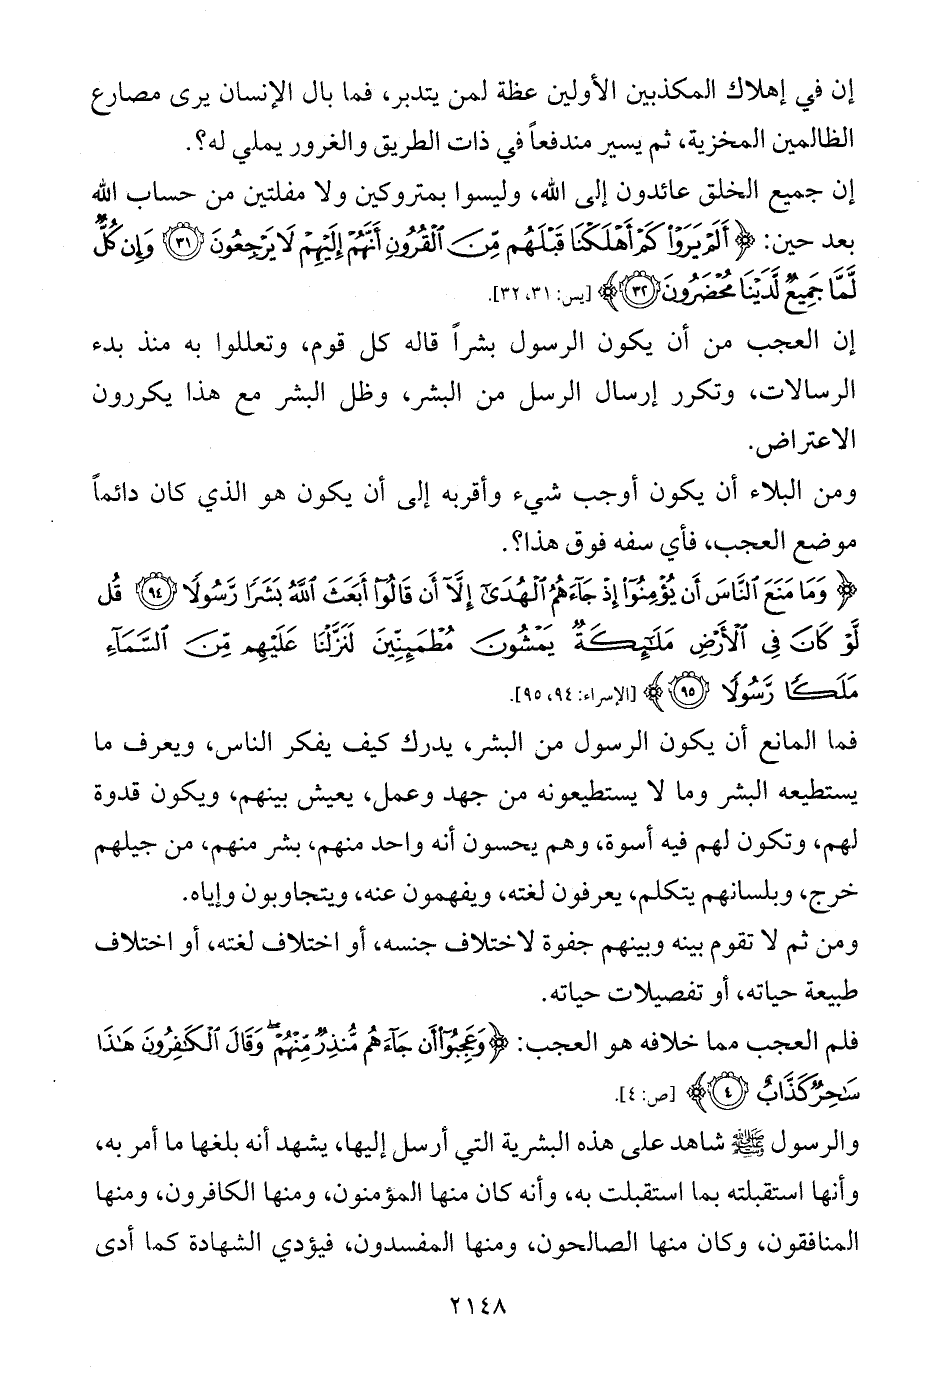 إن في إهلاك المكذبين الأولين عظة لمن يتدبر، فما بال الإنسان يرى مصارع
الظالمين المخزية، ثم يسير مندفعاً في ذات الطريق والغرور يملي له؟.
إن جميع الخلق عائدون إلى الله، وليسوا بمتروكين ولا مفلتين من حساب الله
بعد حين: ﴿أَلَمْ يَرَوْا۟ كَمْ أَهْلَكْنَا قَبْلَهُم مِّنَ ٱلْقُرُونِ أَنَّهُمْ إِلَيْهِمْ لَا يَرْجِعُونَ ﴿٣١﴾ وَإِن كُلٌّ
لَّمَّا جَمِيعٌ لَّدَيْنَا مُحْضَرُونَ ﴿٣٢﴾﴾ [يس: ٣١، ٣٢].
إن العجب من أن يكون الرسول بشراً قاله كل قوم، وتعللوا به منذ بدء
الرسالات، وتكرر إرسال الرسل من البشر، وظل البشر مع هذا يكررون
الاعتراض.
ومن البلاء أن يكون أوجب شيء وأقربه إلى أن يكون هو الذي كان دائماً
موضع العجب، فأي سفه فوق هذا؟.
﴿وَمَا مَنَعَ ٱلنَّاسَ أَن يُؤْمِنُوٓا۟ إِذْ جَآءَهُمُ ٱلْهُدَىٰٓ إِلَّآ أَن قَالُوٓا۟ أَبَعَثَ ٱللَّهُ بَشَرًا رَّسُولًا ﴿٩٤﴾ قُل
لَّوْ كَانَ فِى ٱلْأَرْضِ مَلَٰٓئِكَةٌ يَمْشُونَ مُطْمَئِنِّينَ لَنَزَّلْنَا عَلَيْهِم مِّنَ ٱلسَّمَآءِ
مَلَكًا رَّسُولًا ﴿٩٥﴾﴾ [الإسراء: ٩٤، ٩٥].
فما المانع أن يكون الرسول من البشر، يدرك كيف يفكر الناس، ويعرف ما
يستطيعه البشر وما لا يستطيعونه من جهد وعمل، يعيش بينهم، ويكون قدوة
لهم، وتكون لهم فيه أسوة، وهم يحسون أنه واحد منهم، بشر منهم، من جيلهم
خرج، وبلسانهم يتكلم، يعرفون لغته، ويفهمون عنه، ويتجاوبون وإياه.
ومن ثم لا تقوم بينه وبينهم جفوة لاختلاف جنسه، أو اختلاف لغته، أو اختلاف
طبيعة حياته، أو تفصيلات حياته.
فلم العجب مما خلافه هو العجب: ﴿وَعَجِبُوٓا۟ أَن جَآءَهُم مُّنذِرٌ مِّنْهُمْ ۖ وَقَالَ ٱلْكَٰفِرُونَ هَٰذَا
سَٰحِرٌ كَذَّابٌ ﴿٤﴾﴾ [ص: ٤].
والرسول ﷺ شاهد على هذه البشرية التي أرسل إليها، يشهد أنه بلغها ما أمر به،
وأنها استقبلته بما استقبلت به، وأنه كان منها المؤمنون، ومنها الكافرون، ومنها
المنافقون، وكان منها الصالحون، ومنها المفسدون، فيؤدي الشهادة كما أدى
٢١٤٨